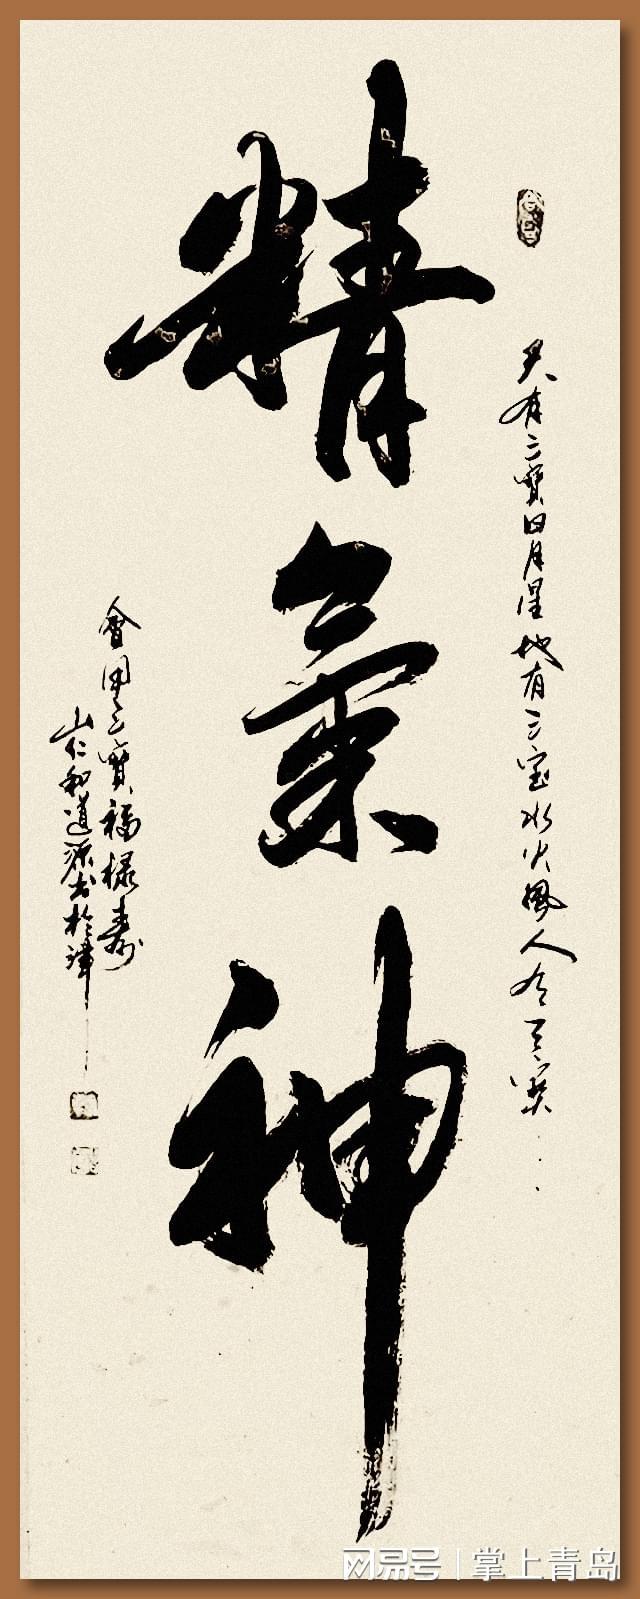 天有三寶日月星地有三宝水火風人三寶
精氣神
會用三寶福祿壽
山仁和道源书於
网易号 | 掌上青岛